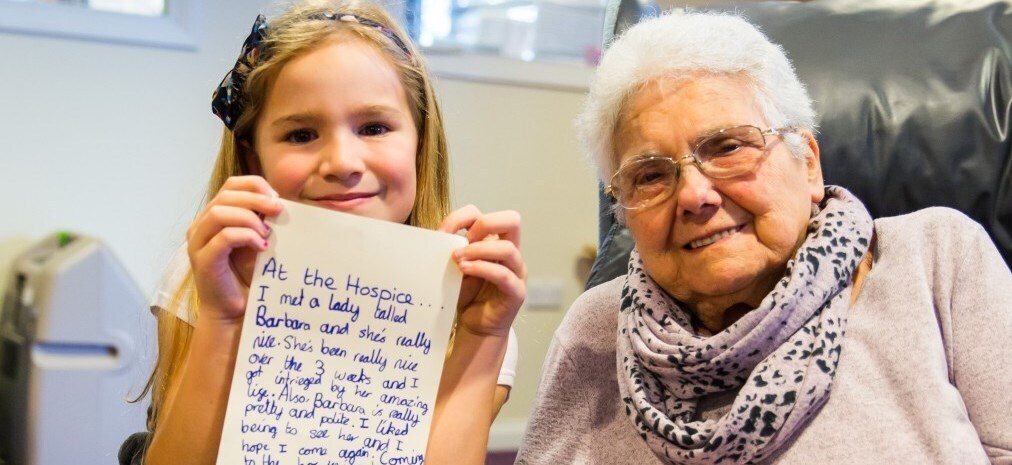 At the Hospice....
I met a lady talled
Barbara and she's really
nice. She's been really nice
over the 3 weeks and I
got intrieged by her amazing
life. Also, Barbara is really
pretty and polite. I liked
being to see her and I
hope I come again. Coming
to the